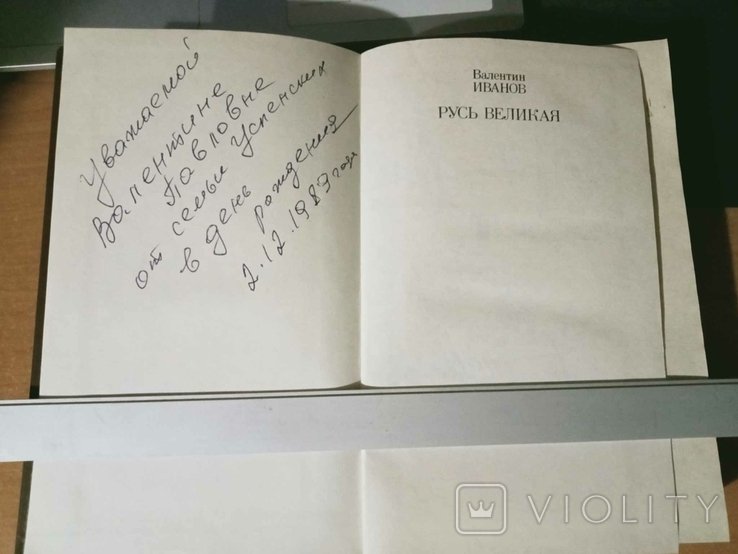 Уважаемой
Валентине
Павловне
от семьи Успенских
в день рождения
2.12.1987 года
Валентин
ИВАНОВ
РУСЬ ВЕЛИКАЯ
VIOLITY